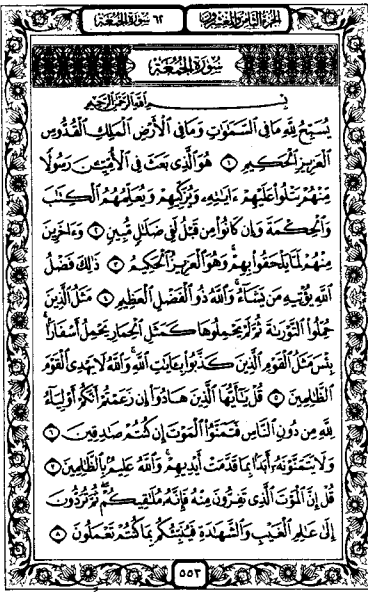 الجزء الثامن والعشرون
٦٢ سورة الجمعة
سورة الجمعة
بسم الله الرحمن الرحيم
يُسَبِّحُ لِلَّهِ مَا فِي السَّمَٰوَٰتِ وَمَا فِي الْأَرْضِ الْمَلِكِ الْقُدُّوسِ
الْعَزِيزِ الْحَكِيمِ ١ هُوَ الَّذِي بَعَثَ فِي الْأُمِّيِّينَ رَسُولًا
مِّنْهُمْ يَتْلُوا عَلَيْهِمْ ءَايَٰتِهِ وَيُزَكِّيهِمْ وَيُعَلِّمُهُمُ الْكِتَٰبَ
وَالْحِكْمَةَ وَإِن كَانُوا مِن قَبْلُ لَفِي ضَلَٰلٍ مُّبِينٍ ٢ وَءَاخَرِينَ
مِنْهُمْ لَمَّا يَلْحَقُوا بِهِمْ وَهُوَ الْعَزِيزُ الْحَكِيمُ ٣ ذَٰلِكَ فَضْلُ
اللَّهِ يُؤْتِيهِ مَن يَشَاءُ وَاللَّهُ ذُو الْفَضْلِ الْعَظِيمِ ٤ مَثَلُ الَّذِينَ
حُمِّلُوا التَّوْرَىٰةَ ثُمَّ لَمْ يَحْمِلُوهَا كَمَثَلِ الْحِمَارِ يَحْمِلُ أَسْفَارًا
بِئْسَ مَثَلُ الْقَوْمِ الَّذِينَ كَذَّبُوا بِـَٔايَٰتِ اللَّهِ وَاللَّهُ لَا يَهْدِي الْقَوْمَ
الظَّٰلِمِينَ ٥ قُلْ يَٰأَيُّهَا الَّذِينَ هَادُوا إِن زَعَمْتُمْ أَنَّكُمْ أَوْلِيَاءُ
لِلَّهِ مِن دُونِ النَّاسِ فَتَمَنَّوُا الْمَوْتَ إِن كُنتُمْ صَٰدِقِينَ ٦
وَلَا يَتَمَنَّوْنَهُ أَبَدًا بِمَا قَدَّمَتْ أَيْدِيهِمْ وَاللَّهُ عَلِيمٌ بِالظَّٰلِمِينَ ٧
قُلْ إِنَّ الْمَوْتَ الَّذِي تَفِرُّونَ مِنْهُ فَإِنَّهُ مُلَٰقِيكُمْ ثُمَّ تُرَدُّونَ
إِلَىٰ عَٰلِمِ الْغَيْبِ وَالشَّهَٰدَةِ فَيُنَبِّئُكُم بِمَا كُنتُمْ تَعْمَلُونَ ٨
٥٥٣